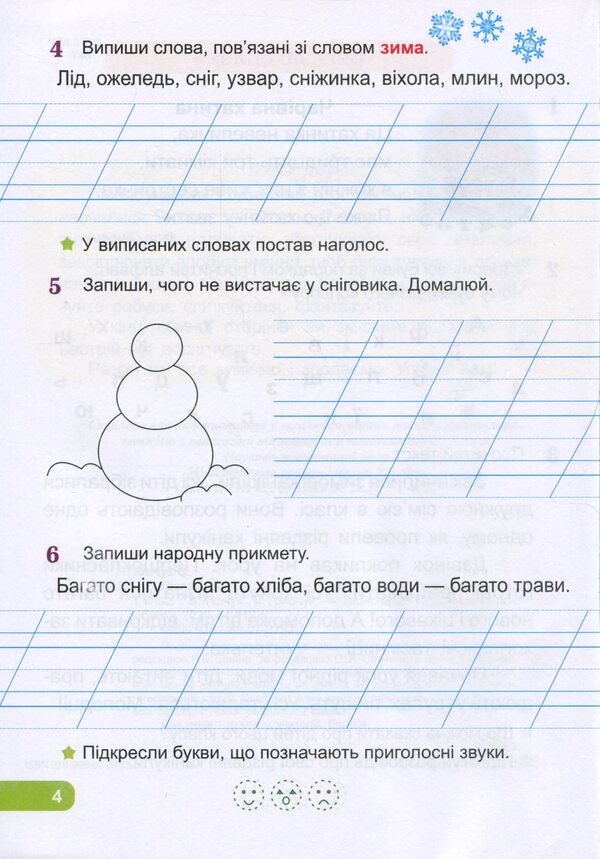 4 Випиши слова, пов'язані зі словом зима.
Лід, ожеледь, сніг, узвар, сніжинка, віхола, млин, мороз.
У виписаних словах постав наголос.
5 Запиши, чого не вистачає у сніговика. Домалюй.
6 Запиши народну прикмету.
Багато снігу — багато хліба, багато води — багато трави.
Підкресли букви, що позначають приголосні звуки.
4